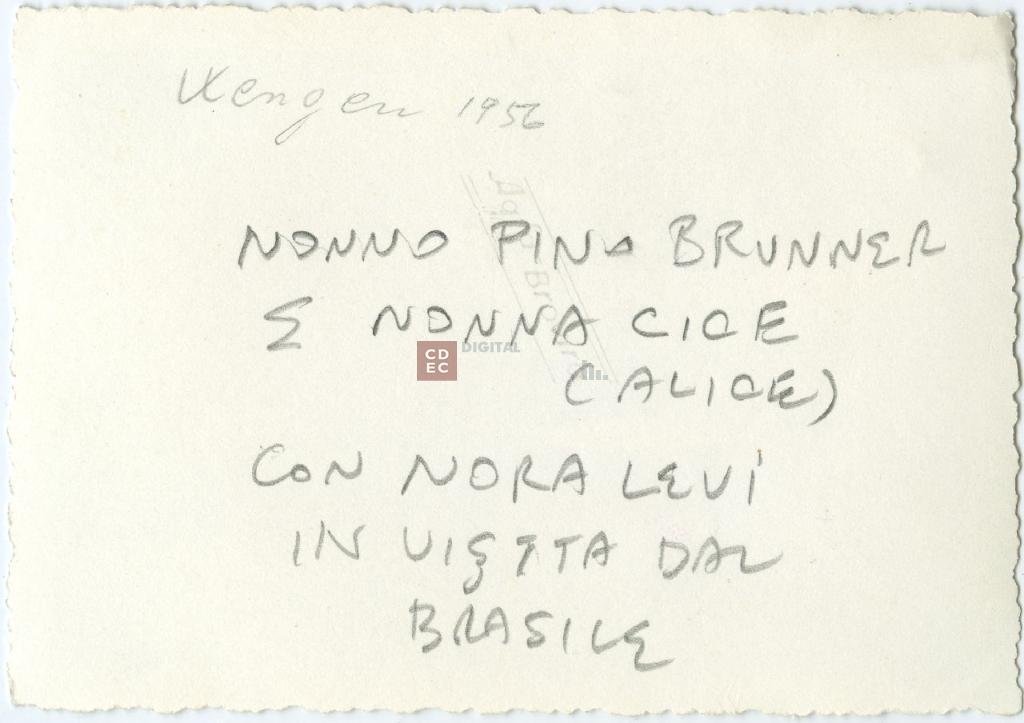 Wengen 1956
NONNO PINO BRUNNER
E NONNA CICE
(ALICE)
CON NORA LEVI
IN VISITA DAL
BRASILE
CDEC DIGITAL